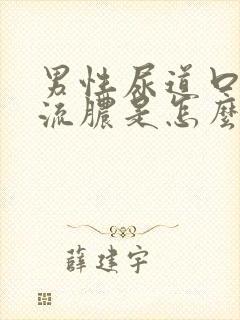 男性尿道口
流膿是怎麼
薛建宇